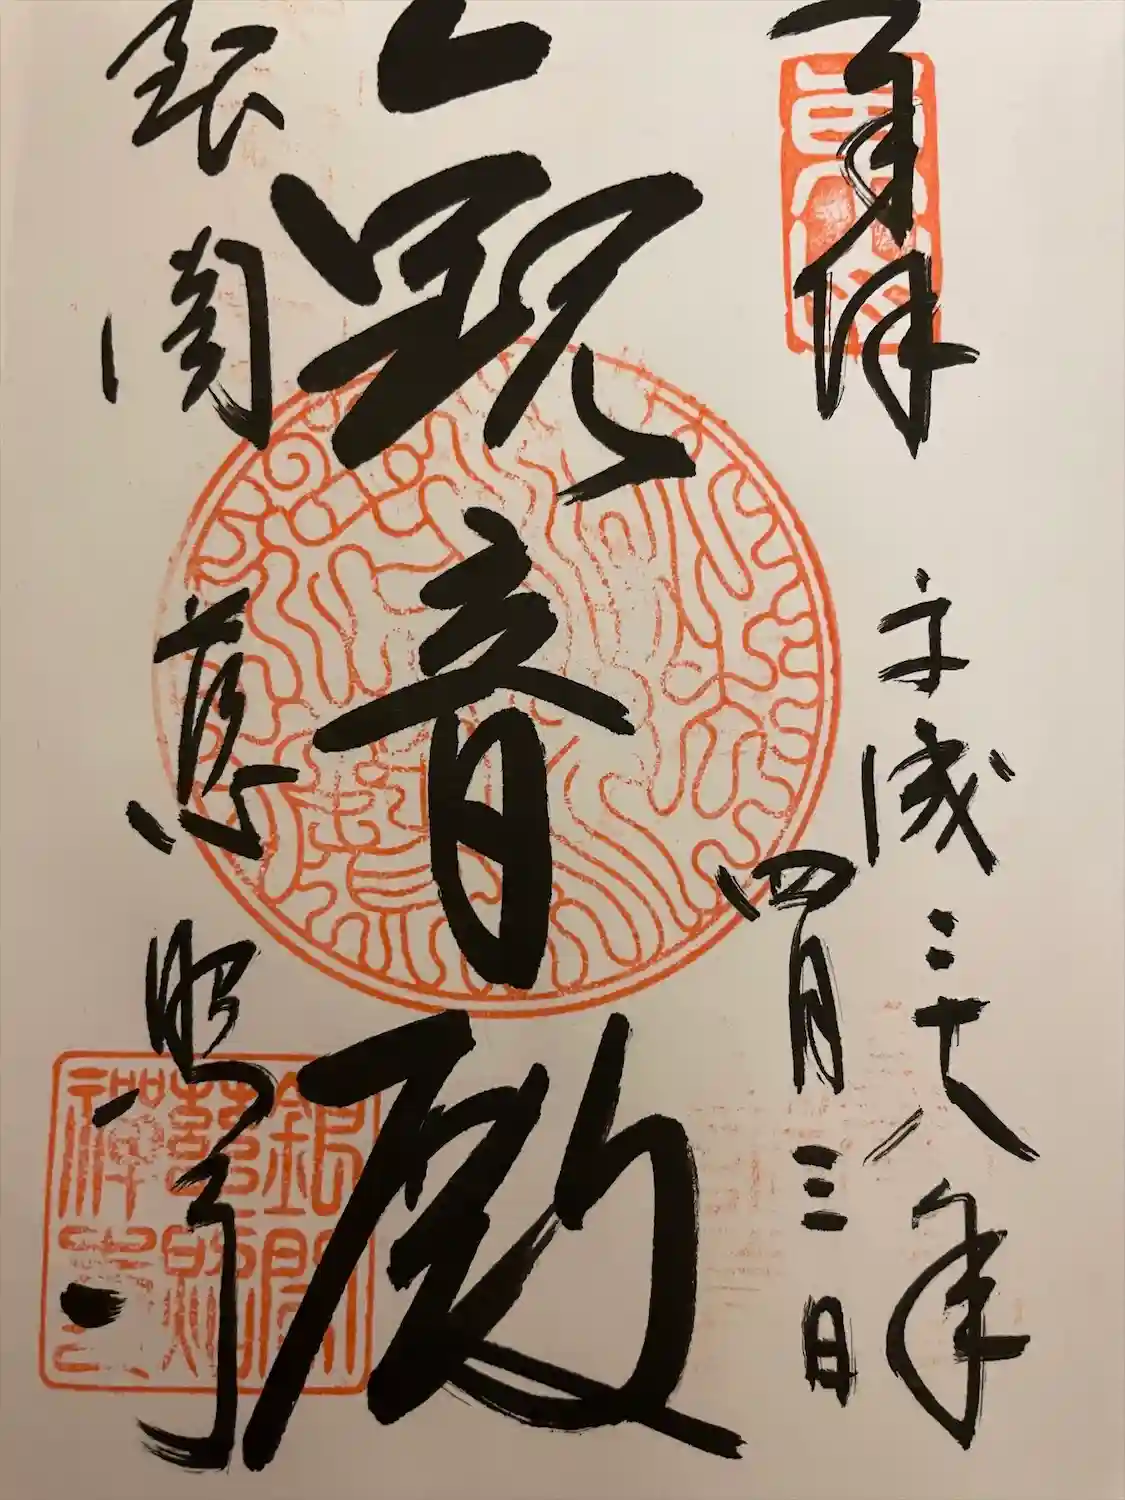 奉拝
平成二十八年
四月三日
観音殿
銀閣慈照寺
銀閣
慈照
禅寺